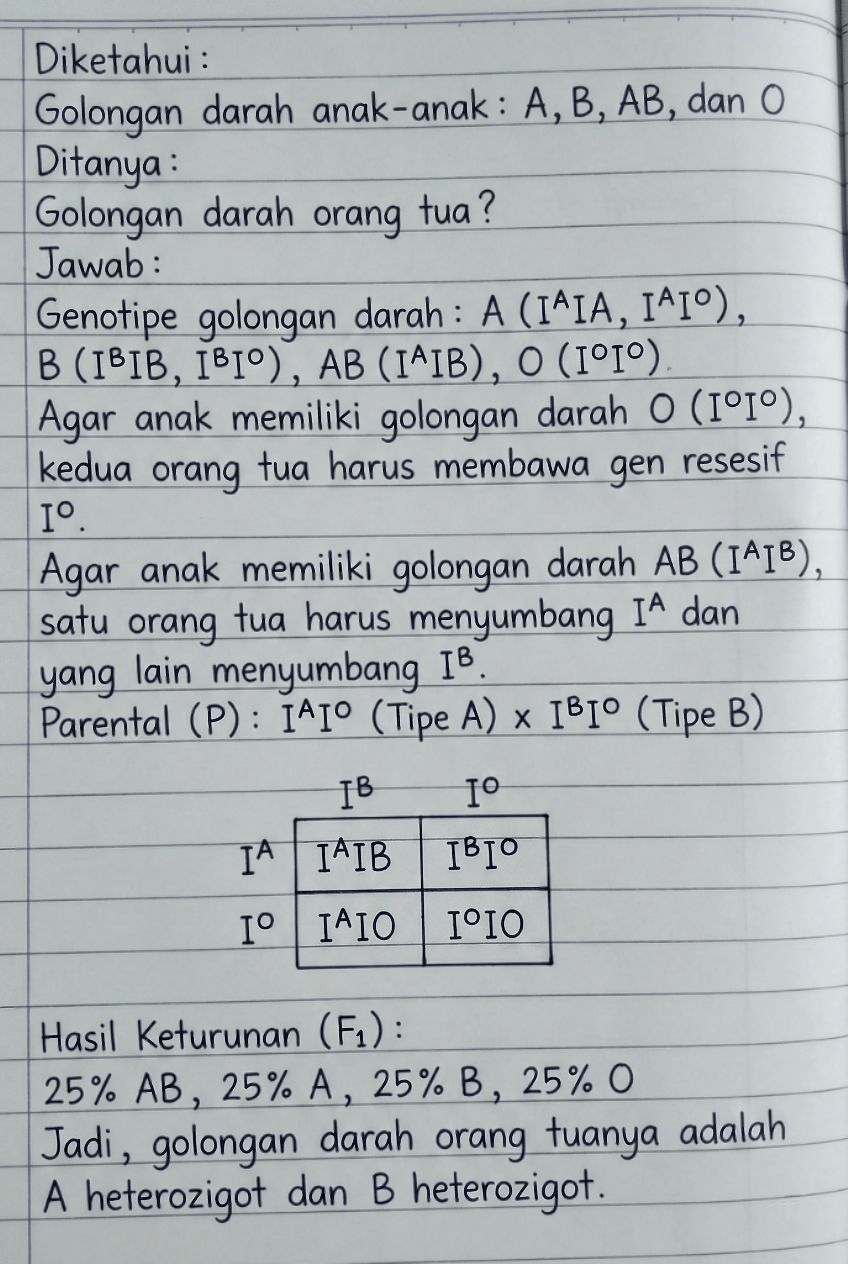 Diketahui :
Golongan darah anak-anak : A, B, AB, dan O
Ditanya :
Golongan darah orang tua?
Jawab :
Genotipe golongan darah : A (IᴬIA, IᴬIᴼ),
B (IᴮIB, IᴮIᴼ), AB (IᴬIB), O (IᴼIᴼ).
Agar anak memiliki golongan darah O (IᴼIᴼ),
kedua orang tua harus membawa gen resesif
Iᴼ.
Agar anak memiliki golongan darah AB (IᴬIᴮ),
satu orang tua harus menyumbang Iᴬ dan
yang lain menyumbang Iᴮ.
Parental (P) : IᴬIᴼ (Tipe A) x IᴮIᴼ (Tipe B)
Iᴮ Iᴼ
Iᴬ IᴬIB IᴮIᴼ
Iᴼ IᴬIO IᴼIO
Hasil Keturunan (F₁) :
25% AB, 25% A, 25% B, 25% O
Jadi, golongan darah orang tuanya adalah
A heterozigot dan B heterozigot.